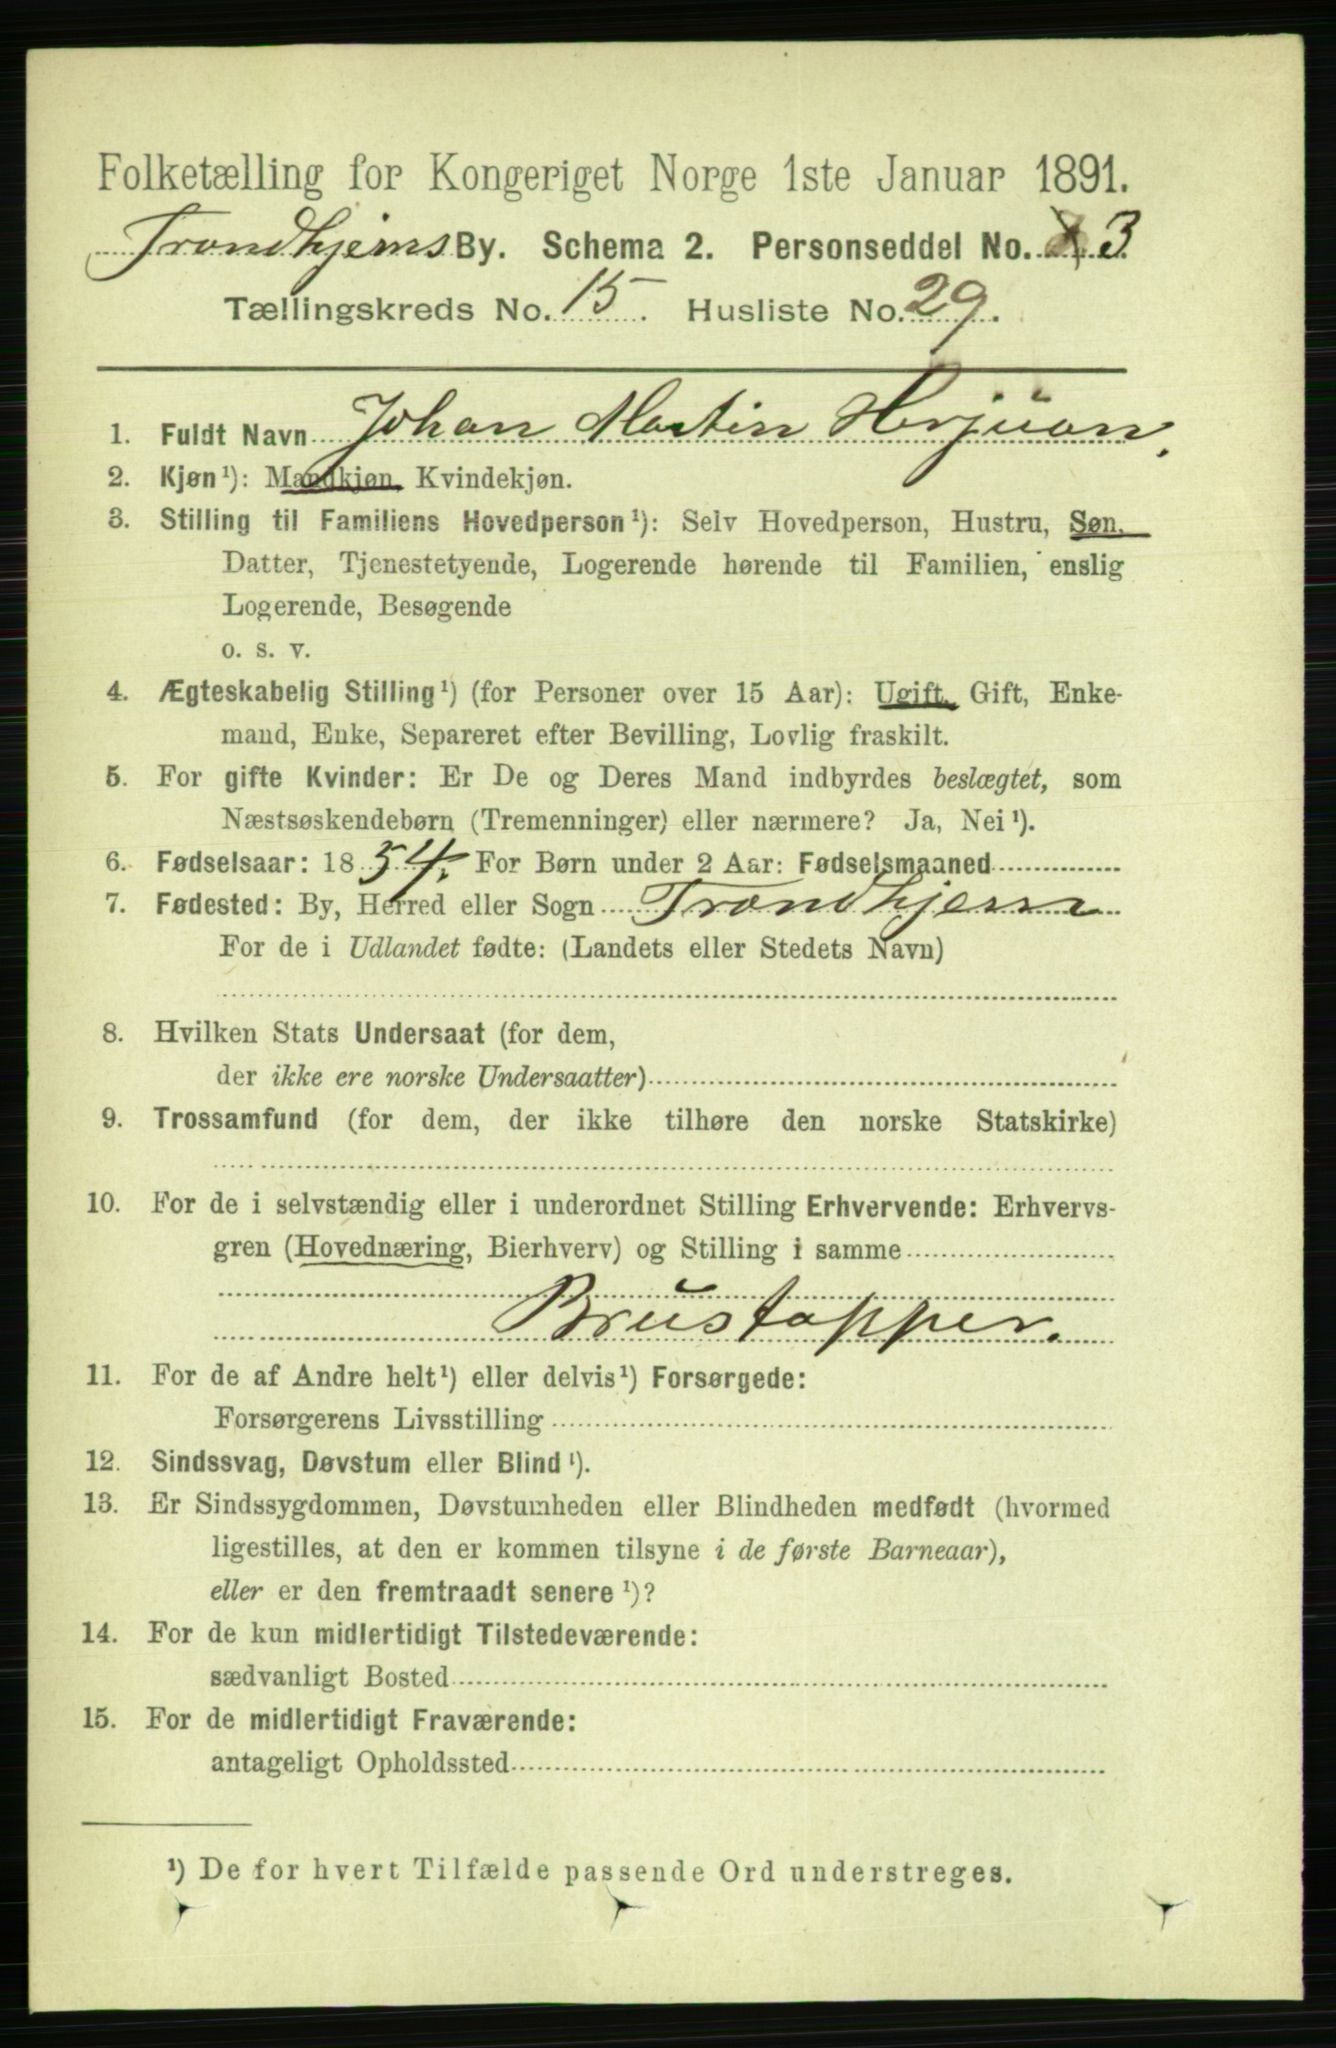 Folketælling for Kongeriget Norge 1ste Januar 1891.
Trondhjems By. Schema 2. Personseddel No. 3
Tællingskreds No. 15. Husliste No. 29.
1. Fuldt Navn Johan Martin Herjuan.
2. Kjøn¹): Mandkjøn, Kvindekjøn.
3. Stilling til Familiens Hovedperson¹): Selv Hovedperson, Hustru, Søn,
Datter, Tjenestetyende, Logerende hørende til Familien, enslig
Logerende, Besøgende
o. s. v.
4. Ægteskabelig Stilling¹) (for Personer over 15 Aar): Ugift, Gift, Enke-
mand, Enke, Separeret efter Bevilling, Lovlig fraskilt.
5. For gifte Kvinder: Er De og Deres Mand indbyrdes beslægtet, som
Næstsøskendebørn (Tremenninger) eller nærmere? Ja, Nei¹).
6. Fødselsaar: 1854. For Børn under 2 Aar: Fødselsmaaned
7. Fødested: By, Herred eller Sogn Trondhjem
For de i Udlandet fødte: (Landets eller Stedets Navn)
8. Hvilken Stats Undersaat (for dem,
der ikke ere norske Undersaatter)
9. Trossamfund (for dem, der ikke tilhøre den norske Statskirke)
10. For de i selvstændig eller i underordnet Stilling Erhvervende: Erhvervs-
gren (Hovednæring, Bierhverv) og Stilling i samme
Brustapper.
11. For de af Andre helt¹) eller delvis¹) Forsørgede:
Forsørgerens Livsstilling
12. Sindssvag, Døvstum eller Blind¹).
13. Er Sindssygdommen, Døvstumheden eller Blindheden medfødt (hvormed
ligestilles, at den er kommen tilsyne i de første Barneaar),
eller er den fremtraadt senere¹)?
14. For de kun midlertidigt Tilstedeværende:
sædvanligt Bosted
15. For de midlertidigt Fraværende:
antageligt Opholdssted
¹) De for hvert Tilfælde passende Ord understreges.